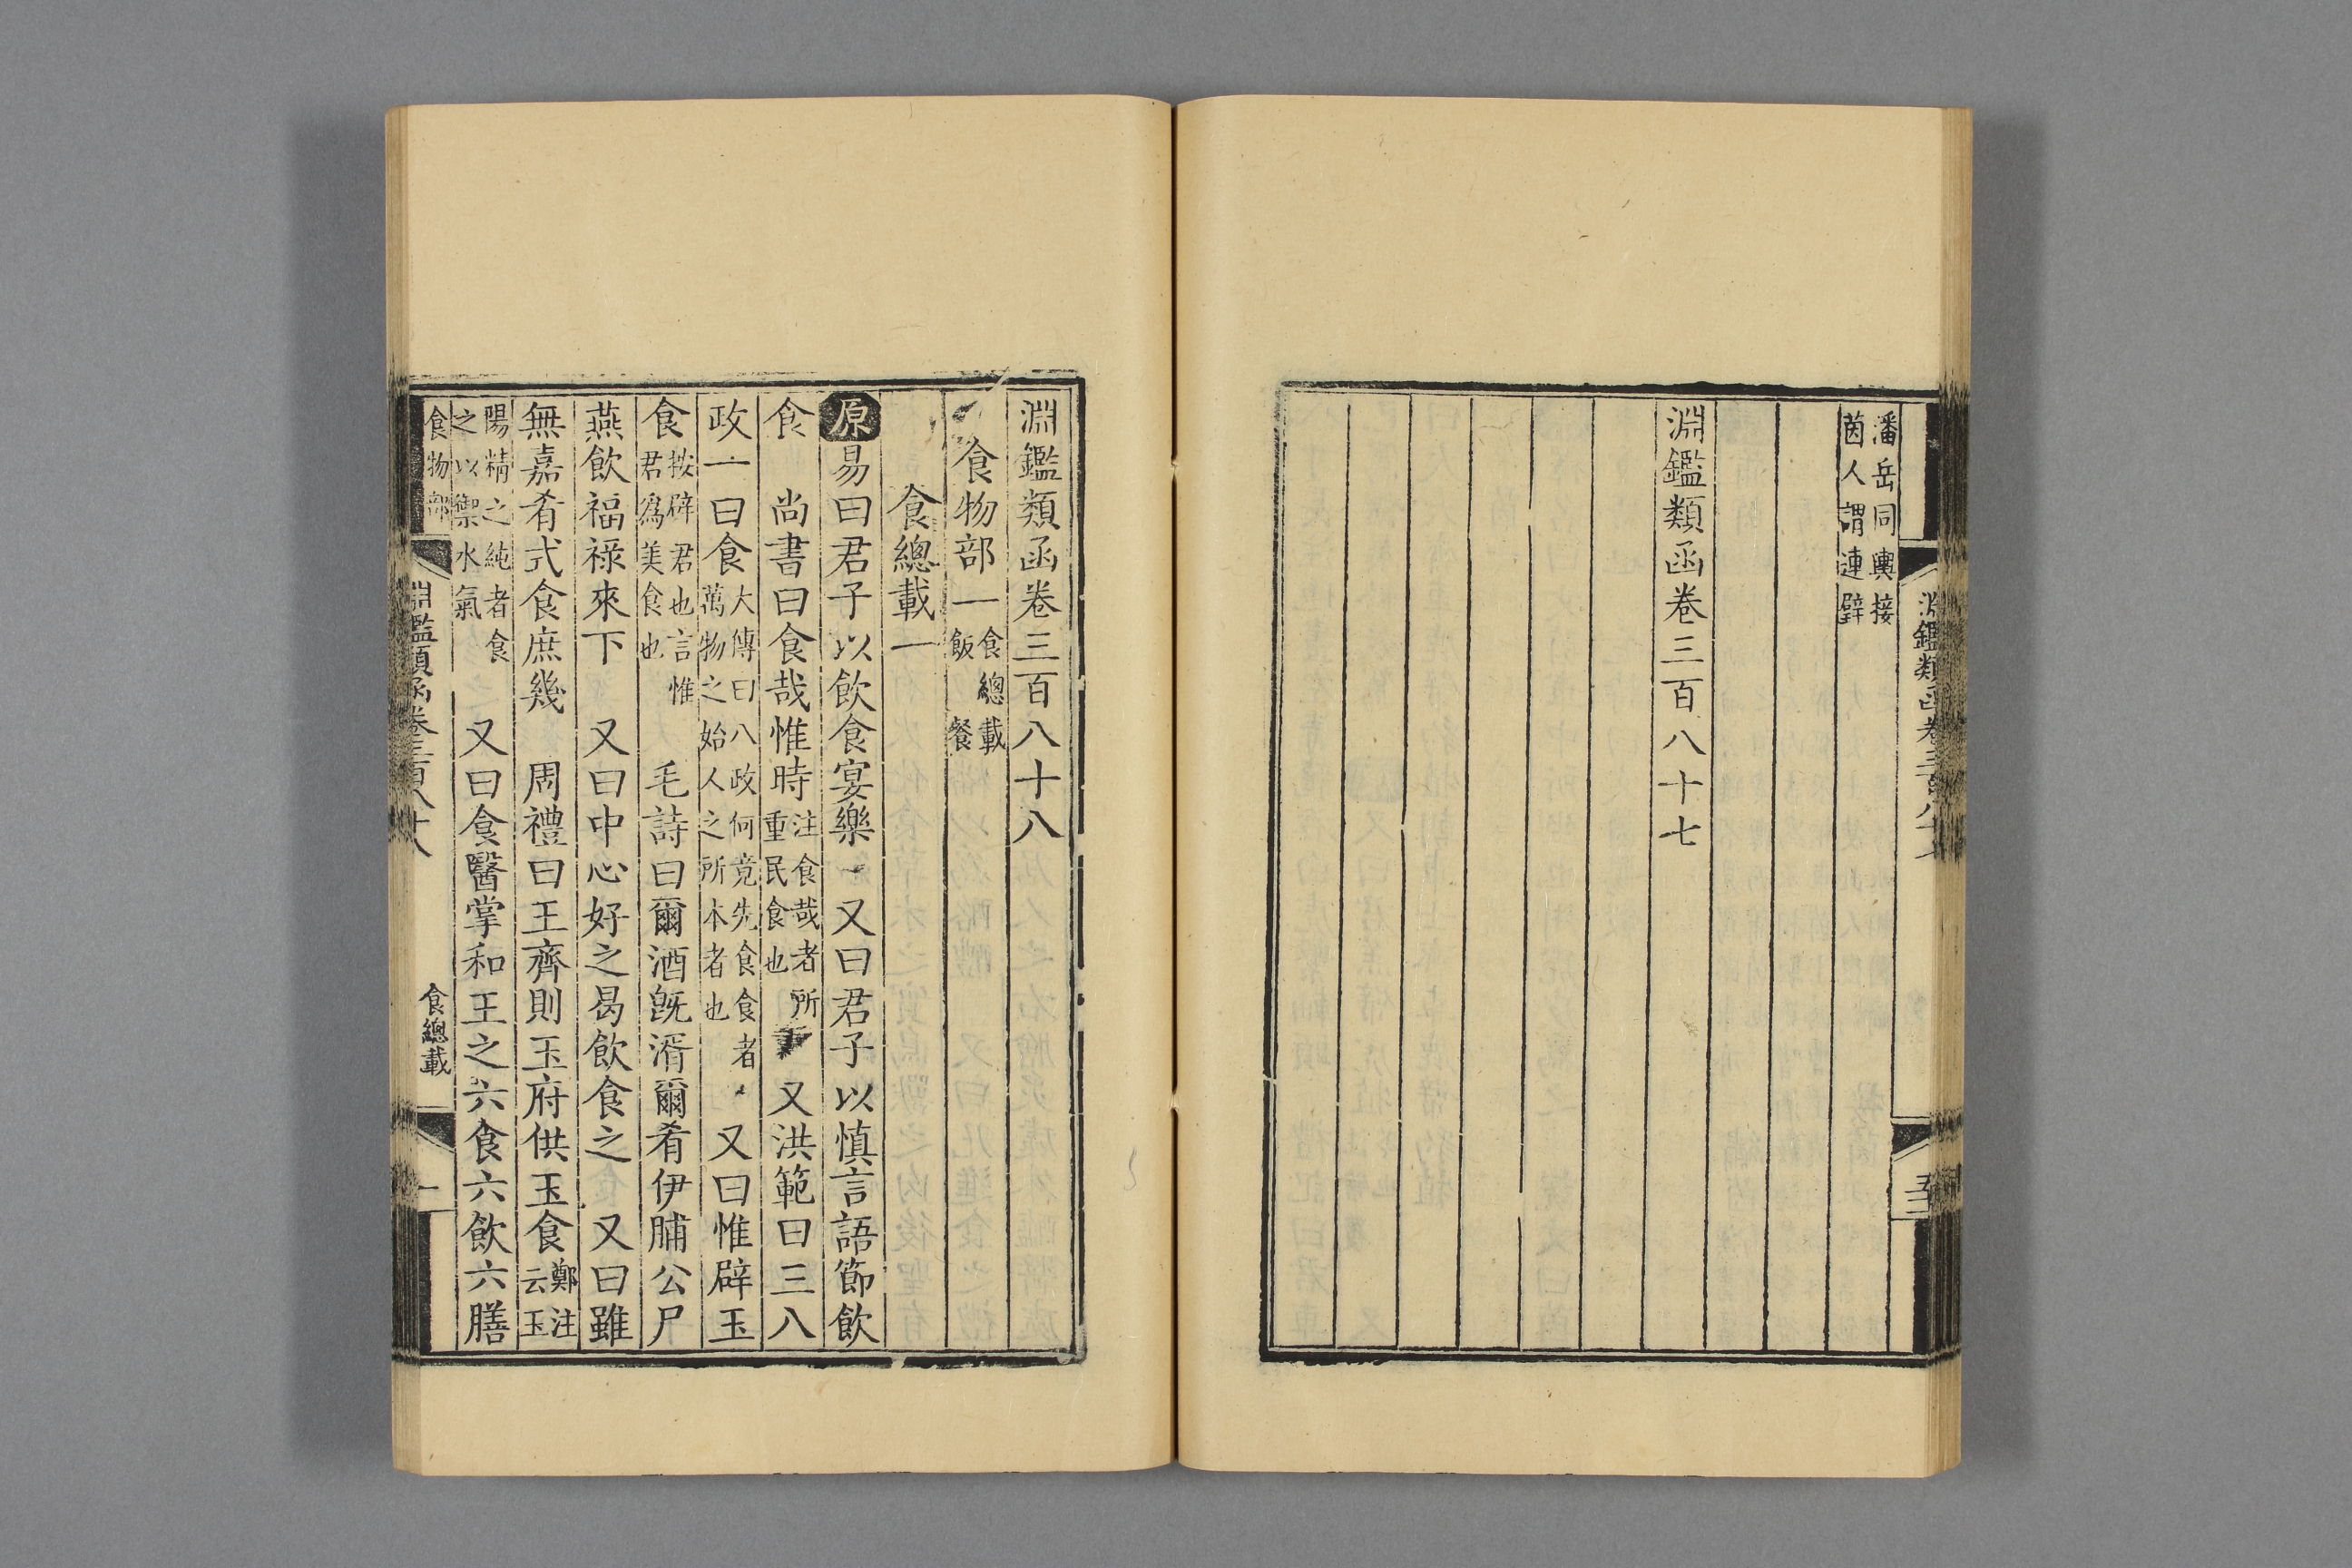 潘岳同輿接
茵人謂連璧
淵鑑類函卷三百八十七
淵鑑類函卷三百八十七
五三
淵鑑類函卷三百八十八
食物部一食總載
飯 餐
食總載一
原易曰君子以飲食宴樂 又曰君子以慎言語節飲
食 尚書曰食哉惟時注食哉者所重民食也 又洪範曰三八
政一曰食大傳曰八政何竟先食食者萬物之始人之所本者也 又曰惟辟玉
食按辟君也言惟君爲美食也 毛詩曰爾酒旣湑爾肴伊脯公尸
燕飲福祿來下 又曰中心好之曷飲食之 又曰雖
無嘉肴式食庶幾 周禮曰王齊則玉府供玉食鄭注云玉
陽精之純者食之以禦水氣 又曰食醫掌和王之六食六飲六膳
食物部
淵鑑類函卷三百八十八
食總載
一